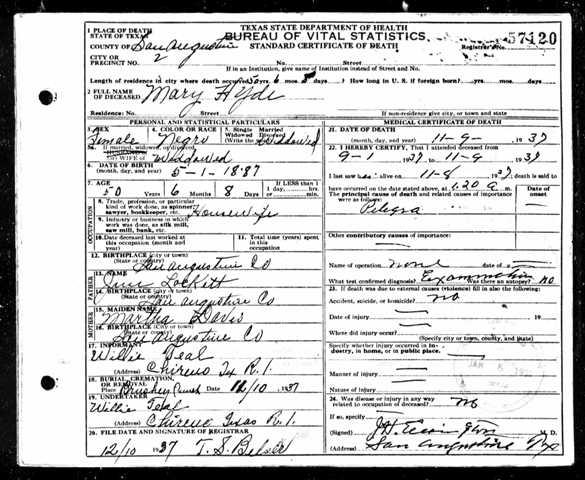 TEXAS STATE DEPARTMENT OF HEALTH
BUREAU OF VITAL STATISTICS
STANDARD CERTIFICATE OF DEATH
57120
1 PLACE OF DEATH
STATE OF TEXAS
COUNTY OF San Augustine
CITY OR
PRECINCT NO. 2
If in an Institution, give name of Institution instead of Street and No.
Length of residence in city where death occurred 50 yrs. 6 mos. 8 days. How long in U. S. if foreign born? yrs. mos. days.
2 FULL NAME
OF DECEASED Mary Hyde
Residence: No. Street
If non-residence give city or town, county, and state
PERSONAL AND STATISTICAL PARTICULARS
3. SEX Female
4. COLOR OR RACE Negro
5. Single Married Widowed Divorced Widowed
5a. If married, widowed, or divorced,
HUSBAND
(or) WIFE OF Widowed
6. DATE OF BIRTH
(month, day, and year) 5-1-1887
7. AGE 50 Years 6 Months 8 Days
If LESS than 1 day, hrs. min.
OCCUPATION
8. Trade, profession, or particular
kind of work done, as spinner,
sawyer, bookkeeper, etc. Housewife
9. Industry or business in which
work was done, as silk mill,
saw mill, bank, etc.
10. Date deceased last worked at
this occupation (month and year)
11. Total time (years) spent
in this occupation
12. BIRTHPLACE (city or town)
(State or county) San Augustine Co
FATHER
13. NAME Jim Lockett
14. BIRTHPLACE (city or town)
(State or county) San Augustine Co
MOTHER
15. MAIDEN NAME Martha Davis
16. BIRTHPLACE (City or town)
(State or county) San Augustine Co
17. INFORMANT Willie Teal
(Address) Chireno Tx R.1.
18. BURIAL, CREMATION,
OR REMOVAL
Place Date 11/10 1937
19. UNDERTAKER Willie Teal
(Address) Chireno Texas R.1.
20. FILE DATE AND SIGNATURE OF REGISTRAR
12/10 1937 T. S.
MEDICAL CERTIFICATE OF DEATH
21. DATE OF DEATH
(month, day, and year) 11-9- 1937
22. I HEREBY CERTIFY, That I attended deceased from
9-1 1937 to 11-9 1937
I last saw alive on 11-8 1937, death is said to
have occurred on the date stated above, at 1:20 a. m.
The principal cause of death and related causes of importance
were as follows:
Date of onset
Pelegra
Other contributory causes of importance:
Name of operation none
What test confirmed diagnosis? Examination Was there an autopsy? no
23. If death was due to external causes (violence) fill in also the following:
Accident, suicide, or homicide? no
Date of injury 19
Where did injury occur?
(Specify city or town, county, and state)
Specify whether injury occurred in industry, in home, or in public place.
Manner of injury
Nature of injury
24. Was disease or injury in any way
related to occupation of deceased? no
If so, specify
(Signed) M. D.
San Augustine Tex